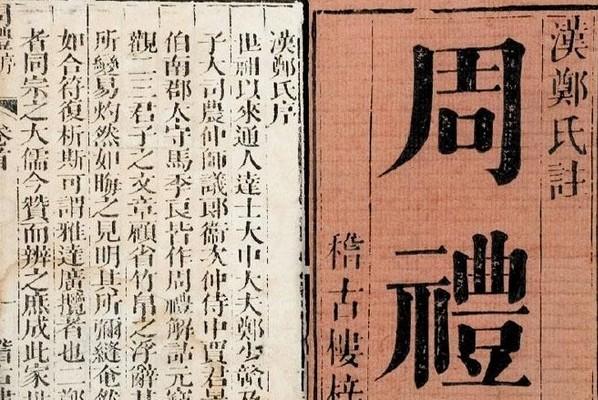 漢鄭氏註
周禮
稽古樓梓
漢鄭氏序
世祖以來通人達士大中大夫鄭少贛及
子大司農仲師議郎衞次仲侍中賈君景
伯南郡太守馬季良皆作周禮解詁元竊
觀二三君子之文章顧省竹帛之浮辭其
所變易灼然如晦之見明其所彌縫奄然
如合符復析斯可謂雅達廣攬者也二鄭
者同宗之大儒今贊而辨之庶成此家世
周禮序 卷首 稽古樓